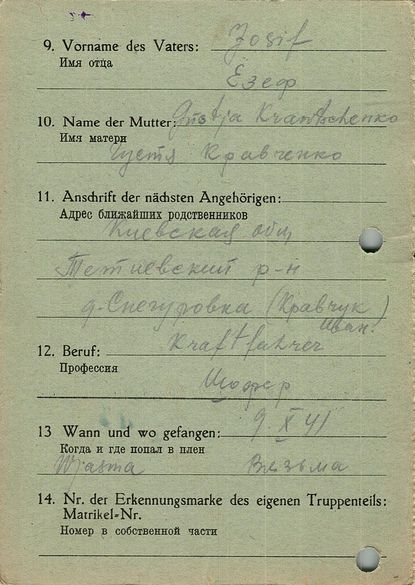 9. Vorname des Vaters: Josif
Имя отца
Езеф
10. Name der Mutter: Justja Krawtschenko
Имя матери
Густя Кравченко
11. Anschrift der nächsten Angehörigen:
Адрес ближайших родственников
Киевская обл
Тетиевский р-н
д. Снегуровка (Кравчук)
Иван.
12. Beruf: Kraftfahrer
Профессия
Шофер
13 Wann und wo gefangen: 9. X 41
Когда и где попал в плен
Wjasma Вязьма
14. Nr. der Erkennungsmarke des eigenen Truppenteils:
Matrikel-Nr.
Номер в собственной части